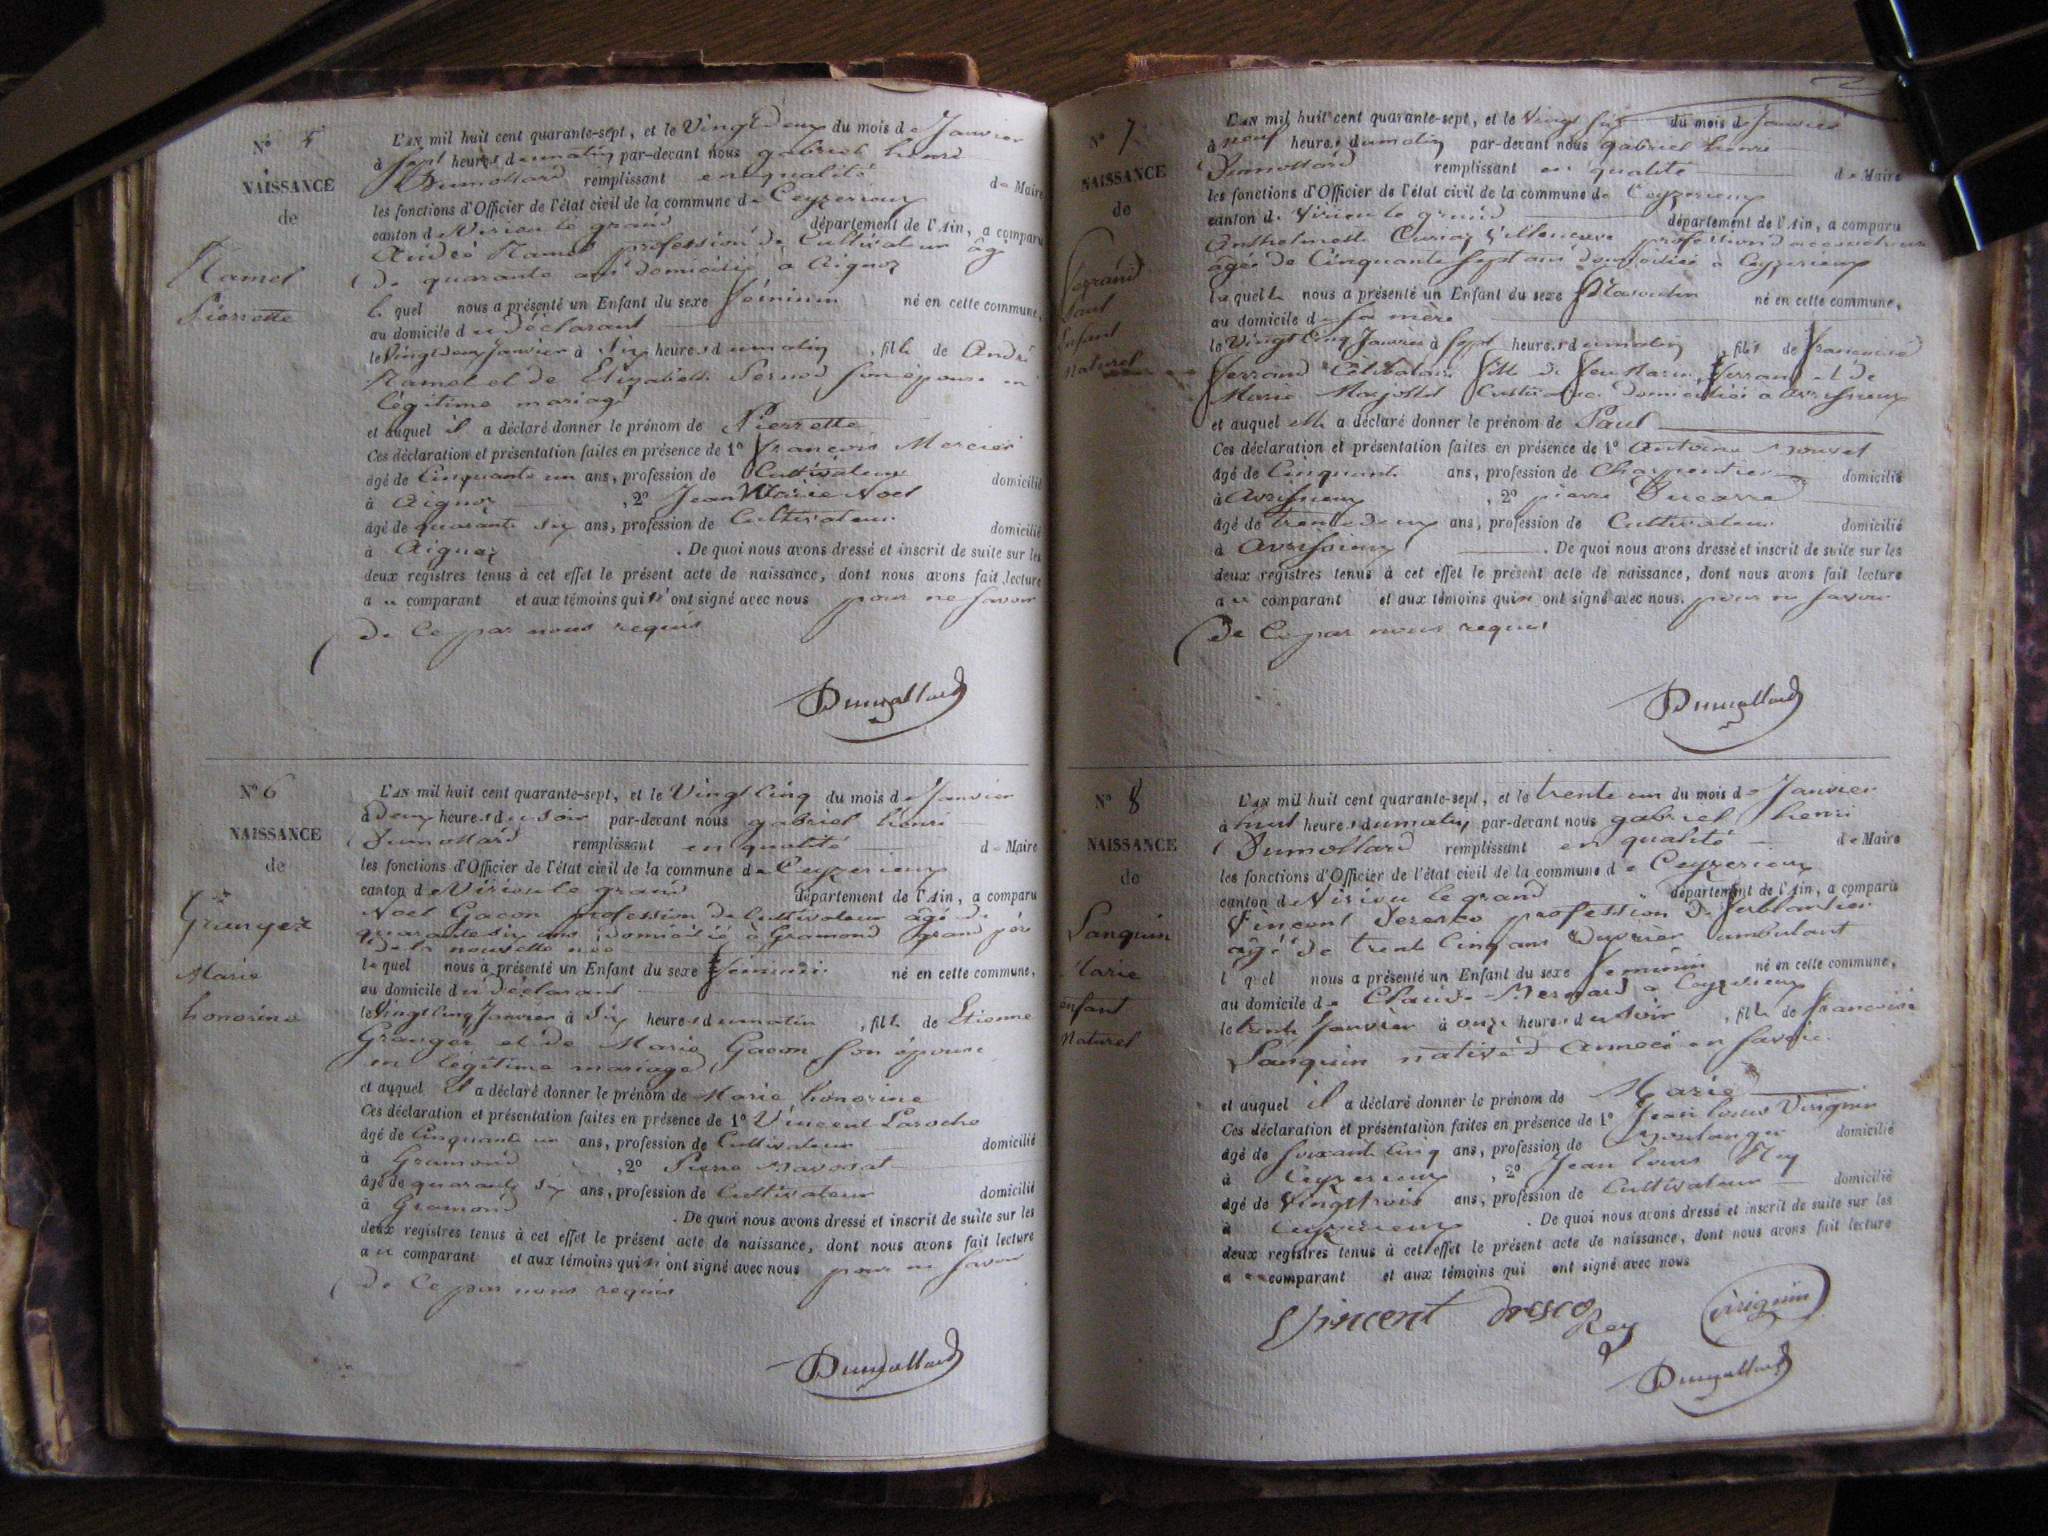 Nº 5
NAISSANCE
de
Ramel
Pierrette
L'AN mil huit cent quarante-sept, et le Vingt deux du mois de Janvier
à sept heures du matin par-devant nous gabriel henri
Dumollard remplissant en qualité de Maire
les fonctions d'Officier de l'état civil de la commune de Ceyzerieux
canton de Virieu le grand département de l'Ain, a comparu
André Ramel profession de Cultivateur âgé
de quarante ans domicilié à Aignoz
lequel nous a présenté un Enfant du sexe féminin né en cette commune,
au domicile du déclarant
le Vingt deux Janvier à six heures du matin, fille de André
Ramel et de Elizabeth Pernod son épouse en
légitime mariage
et auquel il a déclaré donner le prénom de Pierrette
Ces déclaration et présentation faites en présence de 1º François Mercier
âgé de Cinquante un ans, profession de Cultivateur domicilié
à Aignoz, 2º Jean Marie Noel
âgé de quarante six ans, profession de Cultivateur domicilié
à Aignoz. De quoi nous avons dressé et inscrit de suite sur les
deux registres tenus à cet effet le présent acte de naissance, dont nous avons fait lecture
au comparant et aux témoins qui n'ont signé avec nous pour ne savoir
de ce par nous requis
Dumollard
Nº 6
NAISSANCE
de
Granger
Marie
honorine
L'AN mil huit cent quarante-sept, et le Vingt cinq du mois de Janvier
à Deux heures du soir par-devant nous gabriel henri
Dumollard remplissant en qualité de Maire
les fonctions d'Officier de l'état civil de la commune de Ceyzerieux
canton de Virieu le grand département de l'Ain, a comparu
Noel Gacon profession de Cultivateur âgé de
quarante six ans domicilié à Gramond grand père
de la nouvelle née
lequel nous a présenté un Enfant du sexe féminin né en cette commune,
au domicile du déclarant
le Vingt cinq Janvier à six heures du matin, fille de Etienne
Granger et de Marie Gacon son épouse
en légitime mariage
et auquel il a déclaré donner le prénom de Marie honorine
Ces déclaration et présentation faites en présence de 1º Vincent Laroche
âgé de Cinquante un ans, profession de Cultivateur domicilié
à Gramond, 2º Pierre
âgé de quarante six ans, profession de Cultivateur domicilié
à Gramond. De quoi nous avons dressé et inscrit de suite sur les
deux registres tenus à cet effet le présent acte de naissance, dont nous avons fait lecture
au comparant et aux témoins qui n'ont signé avec nous pour ne savoir
de ce par nous requis
Dumollard
Nº 7
NAISSANCE
de
Ferrand
Paul
Enfant
naturel
L'AN mil huit cent quarante-sept, et le Vingt six du mois de Janvier
à neuf heures du matin par-devant nous gabriel henri
Dumollard remplissant en qualité de Maire
les fonctions d'Officier de l'état civil de la commune de Ceyzerieux
canton de Virieu le grand département de l'Ain, a comparu
Anthelmette profession d'accoucheuse
âgée de Cinquante sept ans domiciliée à Ceyzerieux
laquelle nous a présenté un Enfant du sexe Masculin né en cette commune,
au domicile de sa mère
le Vingt cinq Janvier à Sept heures du matin, fils de Françoise
Ferrand Célibataire fille de feu Ferrand et de
Marie domiciliée à Avrissieux
et auquel elle a déclaré donner le prénom de Paul
Ces déclaration et présentation faites en présence de 1º Antoine
âgé de Cinquante ans, profession de Charpentier domicilié
à Avrissieux, 2º pierre Ducarre
âgé de trente deux ans, profession de Cultivateur domicilié
à Avrissieux. De quoi nous avons dressé et inscrit de suite sur les
deux registres tenus à cet effet le présent acte de naissance, dont nous avons fait lecture
au comparant et aux témoins qui n'ont signé avec nous. pour ne savoir
de ce par nous requis
Dumollard
Nº 8
NAISSANCE
de
Lanquin
Marie
enfant
Naturel
L'AN mil huit cent quarante-sept, et le trente un du mois de Janvier
à huit heures du matin par-devant nous gabriel henri
Dumollard remplissant en qualité de Maire
les fonctions d'Officier de l'état civil de la commune de Ceyzerieux
canton de Virieu le grand département de l'Ain, a comparu
Vincent Dresco profession de ferblantier
âgé de trente cinq ans ouvrier ambulant
lequel nous a présenté un Enfant du sexe féminin né en cette commune,
au domicile de Claude Bernard à Ceyzerieux
le trente Janvier à onze heures du soir, fille de Françoise
Lanquin native d'annecé en Savoie
et auquel il a déclaré donner le prénom de Marie
Ces déclaration et présentation faites en présence de 1º Jean Louis Viriguin
âgé de soixante cinq ans, profession de Boulanger domicilié
à Ceyzerieux, 2º Jean louis Rey
âgé de Vingt trois ans, profession de Cultivateur domicilié
à Ceyzerieux. De quoi nous avons dressé et inscrit de suite sur les
deux registres tenus à cet effet le présent acte de naissance, dont nous avons fait lecture
au comparant et aux témoins qui ont signé avec nous
Vincent Dresco Rey Viriguin
Dumollard